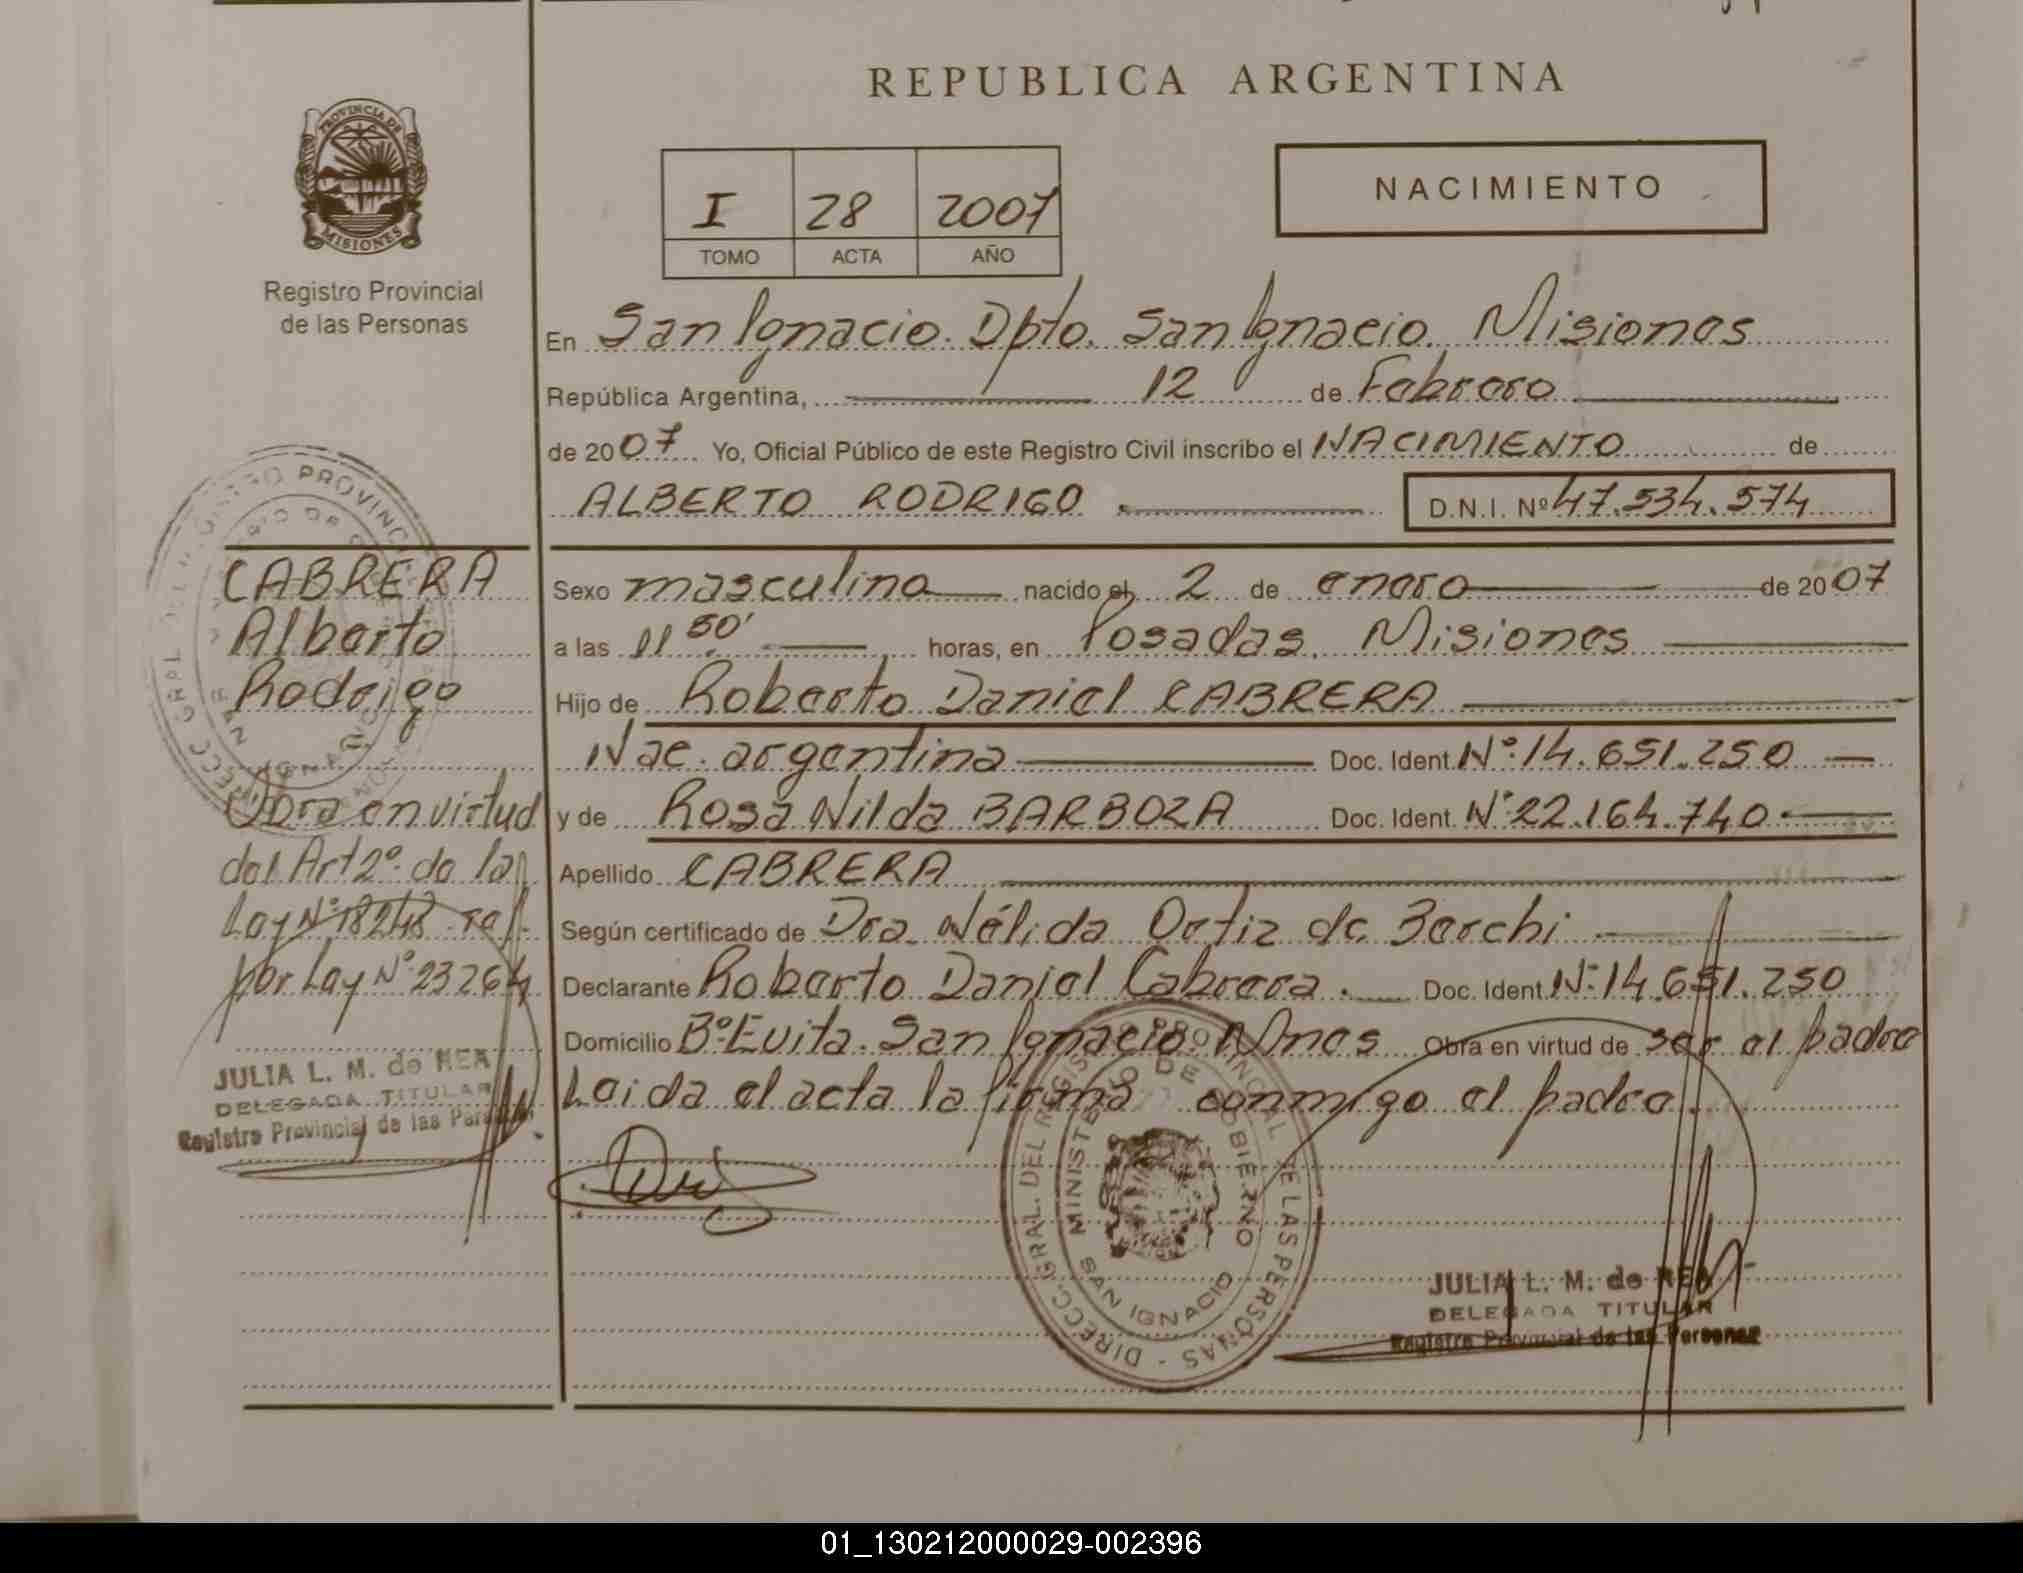 REPUBLICA ARGENTINA
PROVINCIA DE
MISIONES
Registro Provincial
de las Personas
I 28 2007
TOMO ACTA AÑO
NACIMIENTO
En San Ignacio. Dpto. San Ignacio. Misiones
República Argentina, 12 de Febrero
de 2007 Yo, Oficial Público de este Registro Civil inscribo el NACIMIENTO de
ALBERTO RODRIGO D.N.I. Nº 47.534.574
CABRERA
Alberto
Rodrigo
Obra en virtud
del Art 2º de la
Ley Nº 18248 ref.
por Ley Nº 23264
JULIA L. M. de REA
DELEGADA TITULAR
Registro Provincial de las Personas
Sexo masculino nacido el 2 de enero de 2007
a las 11 50' horas, en Posadas. Misiones
Hijo de Roberto Daniel CABRERA
Nac. argentina Doc. Ident. Nº 14.651.250
y de Rosa Nilda BARBOZA Doc. Ident. Nº 22.164.740
Apellido CABRERA
Según certificado de Dra. Nélida Ortiz de Berchi
Declarante Roberto Daniel Cabrera. Doc. Ident. Nº 14.651.250
Domicilio Bº Evita. San Ignacio. Mnes Obra en virtud de ser el padre
Leida el acta la firma conmigo el padre.
DIRECC. GRAL. DEL REGISTRO PROVINCIAL DE LAS PERSONAS
MINISTERIO DE GOBIERNO
SAN IGNACIO
JULIA L. M. de REA
DELEGADA TITULAR
Registro Provincial de las Personas
01_130212000029-002396